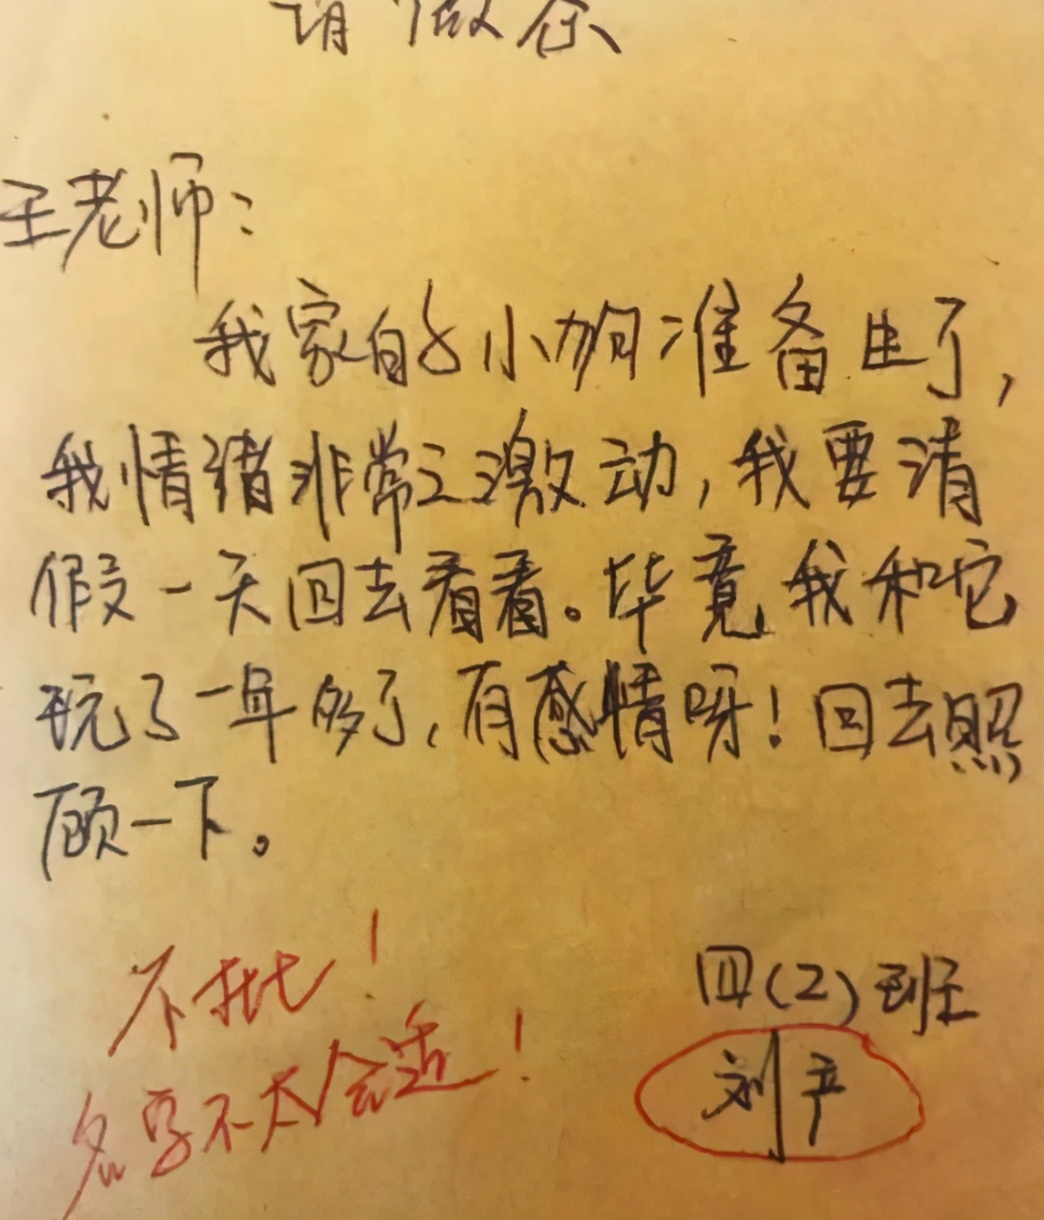 请假条
王老师:
我家的小狗准备生了,
我情绪非常之激动,我要请
假一天回去看看。毕竟我和它
玩了一年多了,有感情呀!回去照
顾一下。
不批!
名字不太合适!
四(2)班
刘产